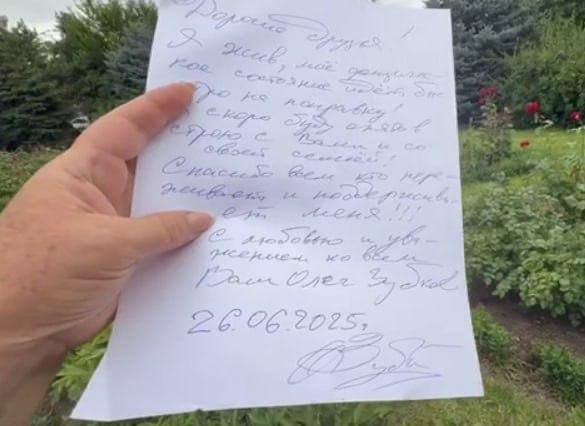 Дорогие друзья!
Я жив, моё физичес-
кое состояние идёт быс
тро на поправку!
Я скоро буду опять в
строю с Вами и со
своей семьёй!
Спасибо всем кто пере-
живает и поддержива-
ет меня!!!
С любовью и ува-
жением ко всем
Ваш Олег Зубков
26.06.2025г